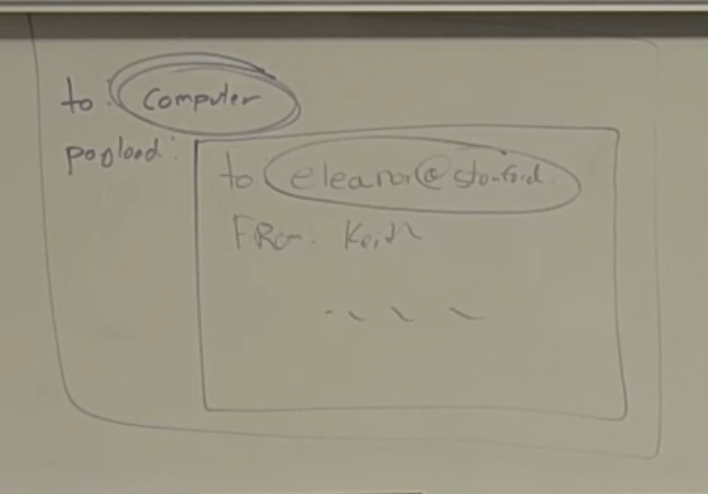 to: Computer
payload:
to eleanor@stanford.
FROM: Keith